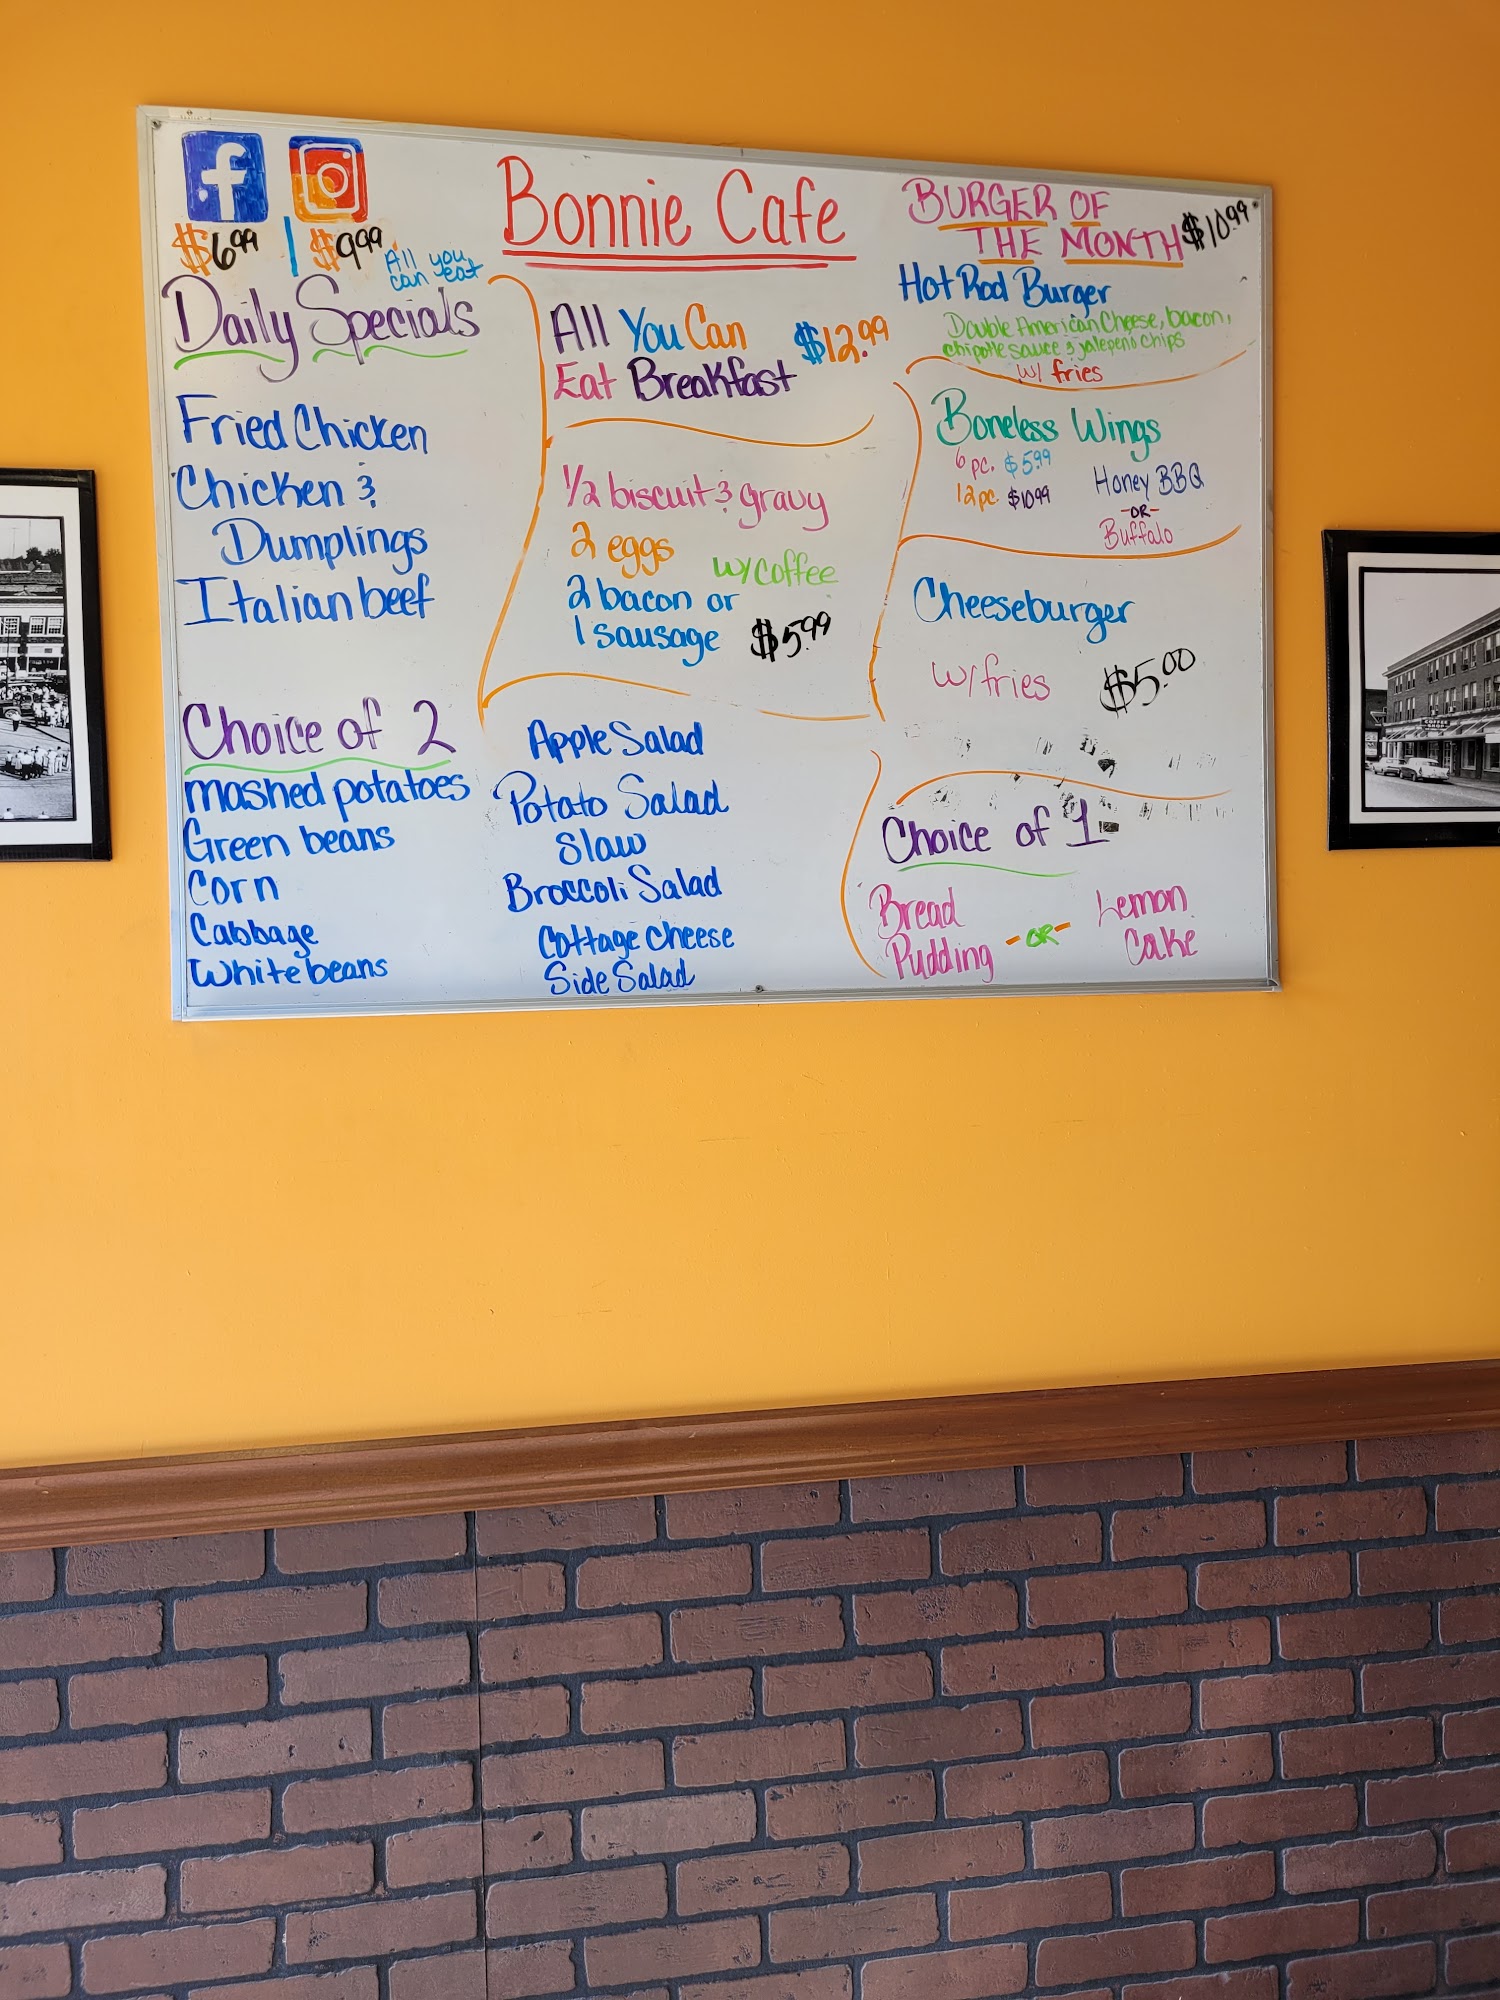 $6.99 | $9.99 All you can eat
Daily Specials
Fried Chicken
Chicken &
Dumplings
Italian beef
Choice of 2
mashed potatoes
Green beans
Corn
Cabbage
White beans
Bonnie Cafe
All You Can
Eat Breakfast
$12.99
1/2 biscuit & gravy
2 eggs
w/coffee
2 bacon or
1 sausage
$5.99
Apple Salad
Potato Salad
Slaw
Broccoli Salad
Cottage cheese
Side Salad
BURGER OF
THE MONTH $10.99
Hot Rod Burger
Double American Cheese, bacon,
chipotle sauce & jalepeno chips
w/ fries
Boneless Wings
6 pc. $5.99
12 pc. $10.99
Honey BBQ
-OR-
Buffalo
Cheeseburger
w/fries
$5.00
Choice of 1
Bread
Pudding
-OR-
Lemon
Cake